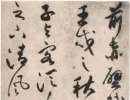 前赤壁
壬戌之秋
子與客泛
之下清風